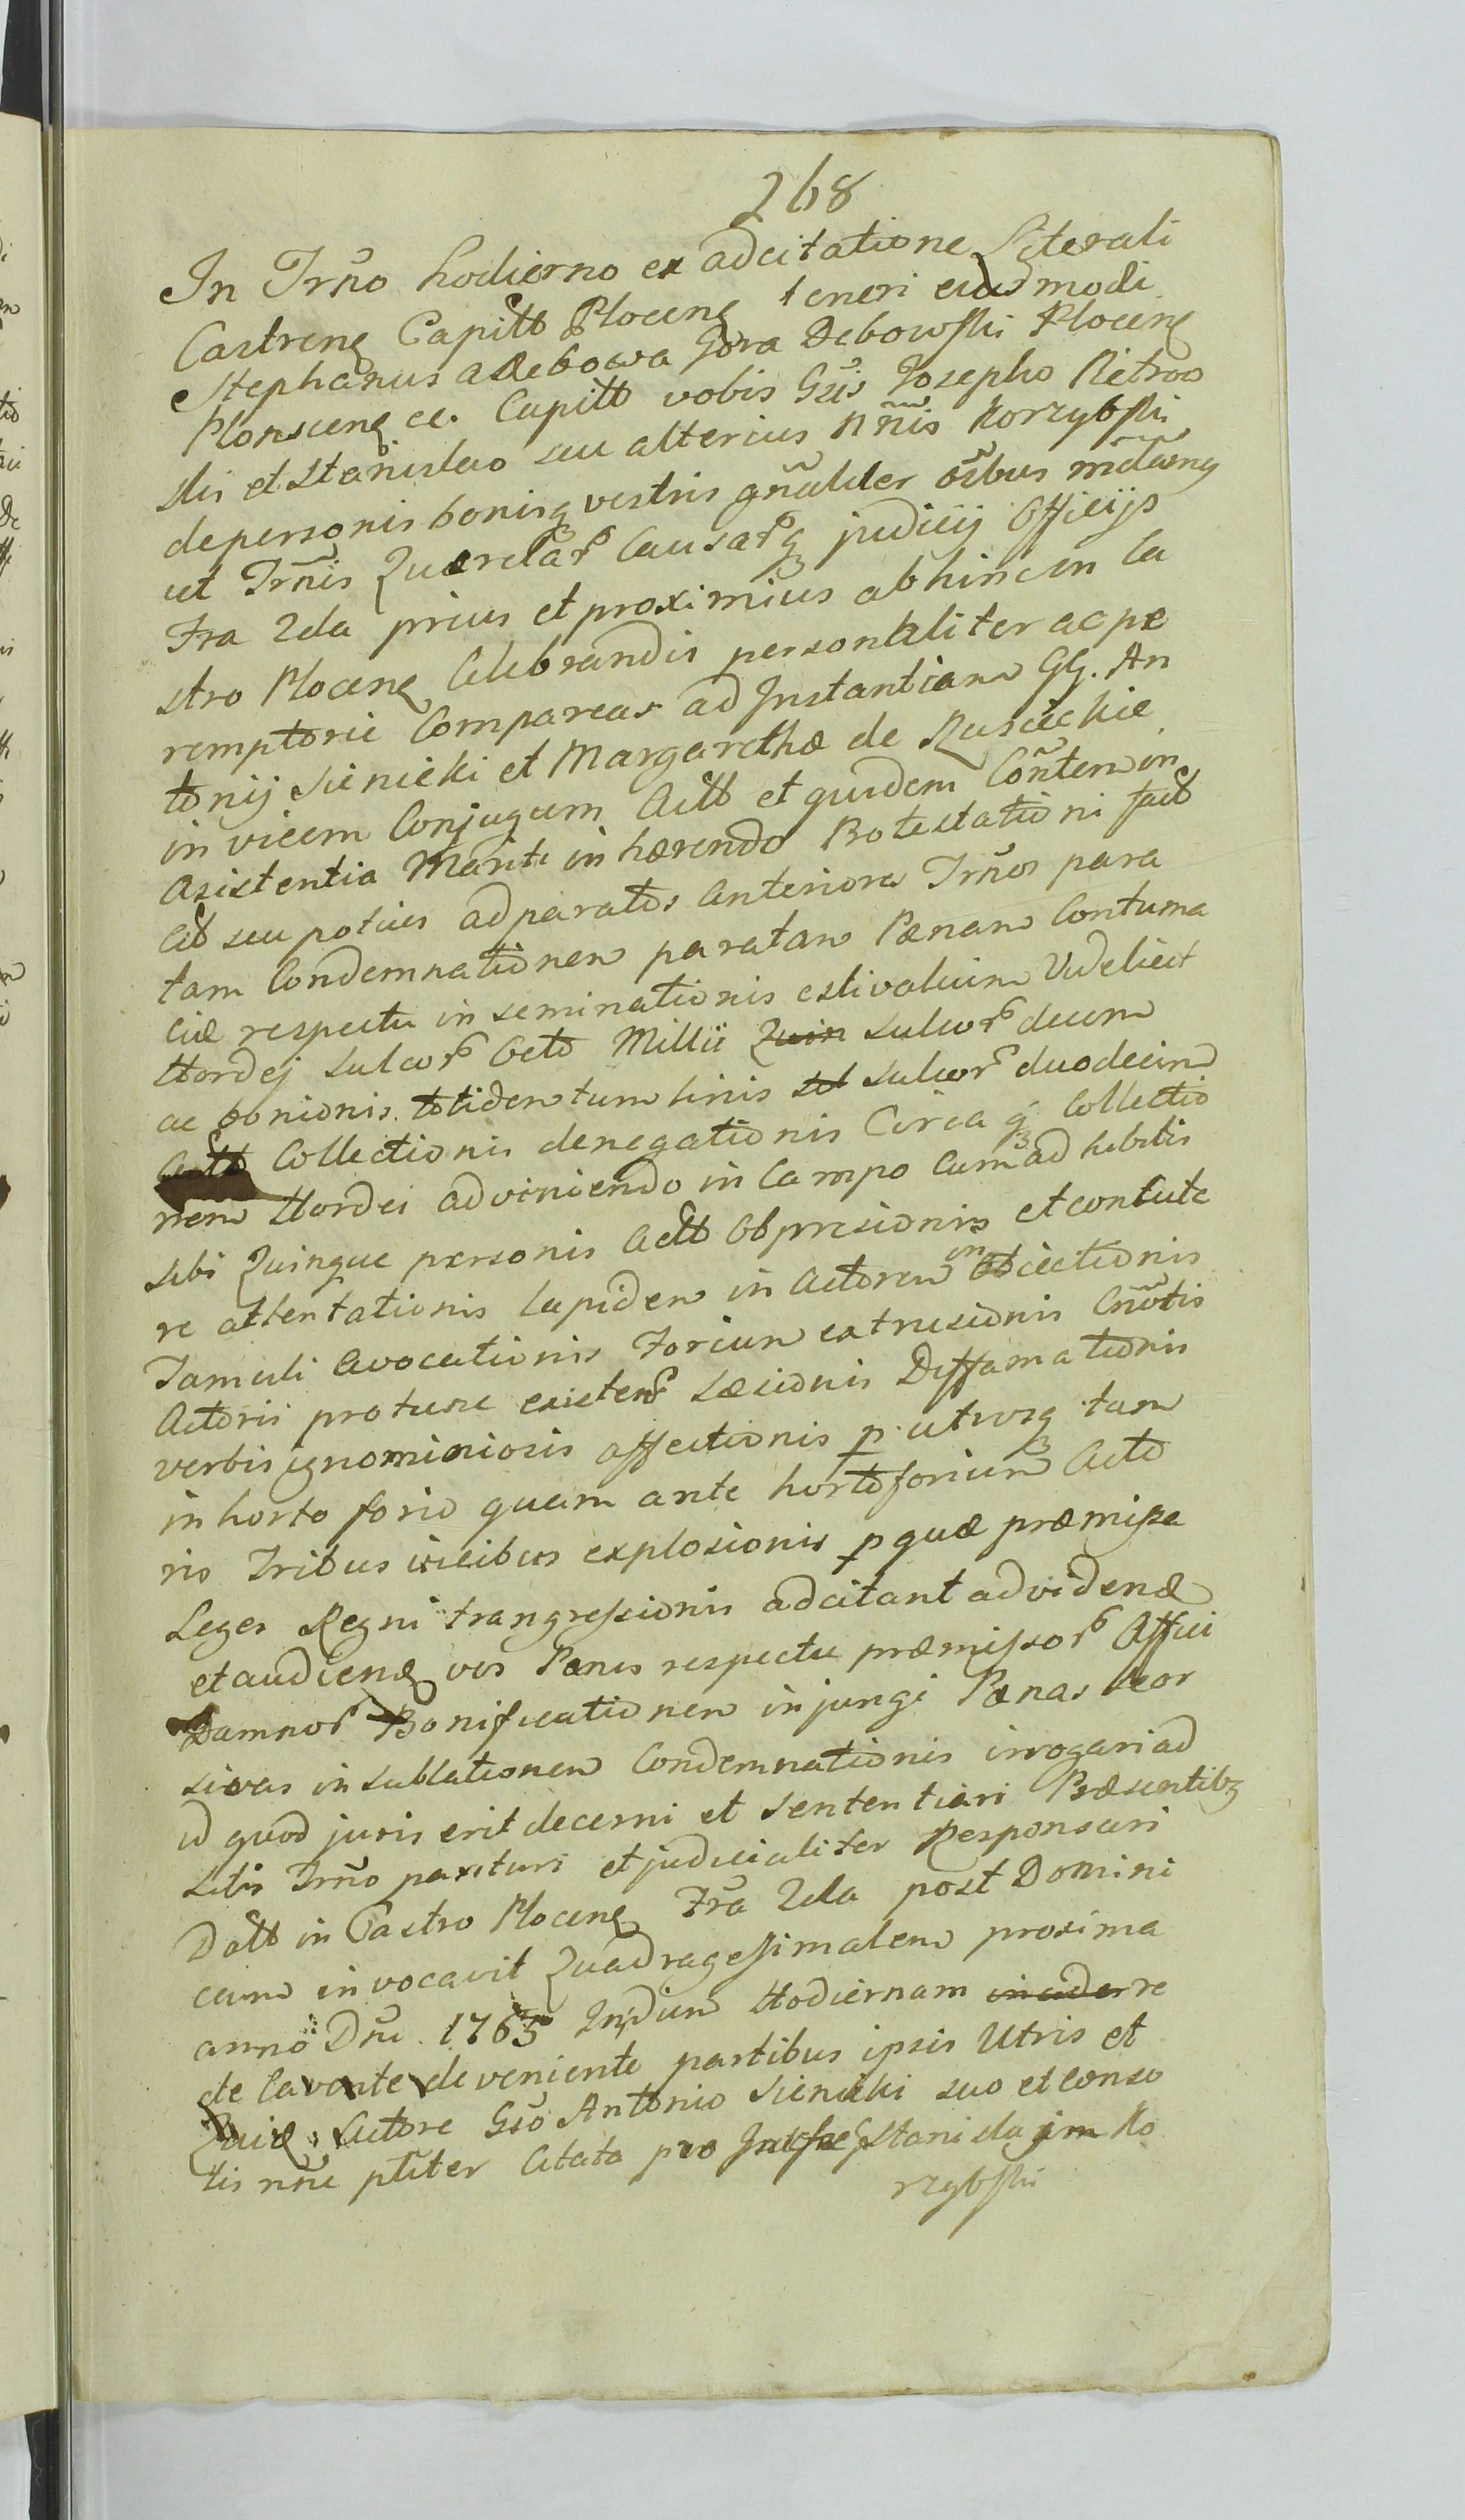 268
In Trño hodierno ex adcitatione Literali
Castrenȩ Capitt Plocenȩ tenori eiusmodi
Stephanus a Debowa Gora Debowski Plocenȩ
Plonscenȩ ce. Capitt vobis Gsis Josepho Pietrao
dis et Stanislao seu alterius nñis Korzybski
de personis bonisq vestris gñaliter oĩbus mdamȩ
ut Trñis Querelar Causarq judicij Officijs
Fra 2da prius et proximius abhinc in Ca
stro Plocenȩ Celebrandis personaliter ac pe
remptorie Compareas ad Instantiam GG. An
tonij Sienicki et Margarethæ de Rusieckie
in vicem Conjugum Actt et quidem Coñten in
Asistentia Mariti in hærendo Protestationi fact
Act seu potius ad paratos Anteriora Trños para
tam Condemnationem paratam Pænam Contuma
ciæ respectu in seminationis estivalium Videlicet
Hordej Sulcor Octo Millii Quin Sulcor decem
ac bonionis totidem tum linis sul Sulcor duodecim
Actt Collectionis denegationis Circa q Collectio
nem Hordei adveniendo in Campo Cum adhibitis
sibi Quinque personis Actt Obpresionis et contute
re attentationis lapidem in Actorem in Obiectionis
Famuli Avocationis Forium extrusionis Cnõtis
Actoris protunc existenȩ Læsionis Diffamationis
verbis ignominiosis affectionis p utrosq tam
in horto forio quam ante hortoforium Acto
ris Tribus vicibus explosionis p quæ præmissa
Leges Regni trangressionis adcitant ad videnȩ
et audienȩ vos Pænis respectu præmissor Affici
Damnor Bonificationem injungi Pænas vior
sivas in sublationem Condemnationis irrogari ad
id quod juris erit decerni et sententiari Præsentibȝ
Sitis Trño parituri et judicialiter Responsuri
Datt in Castro Plocenȩ Fra 2da post Domini
cam invocavit Quadragesimalem proxima
anno Dni 1765 In diem Hodiernam incider re
cte Cavente deveniente partibus ipsis Utris et
Quidȩ Actore Gso Antonio Sienicki suo et conso
tis nñe pliter Citato pro Stanislaum Ko
rzybski